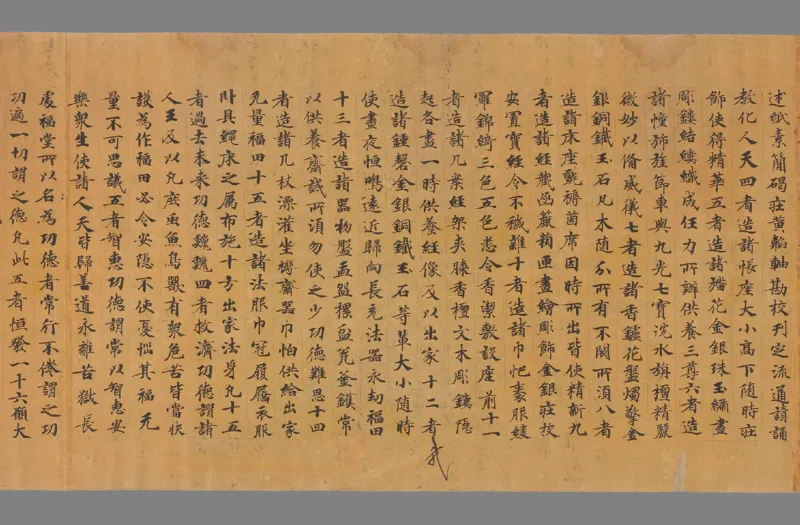 述紙素簡碣莊黃軺軸勘挍刊定流通讀誦
教化人天四者造諸帳座大小高下隨時莊
飾使得精華五者造諸旛花金銀珠玉繡畫
彫鏤結縷織成任力所辦供養三尊六者造
諸幢旆旌節車輿九光七寶沈水旃檀精麗
微妙以備威儀七者造諸香鑪花盤燭擎金
銀銅鐵玉石凡木隨所有不闕所須八者
造諸床座氈褥茵席因時所出皆使精新九
者造諸經藏函簏箱匣畫繪彫飾金銀莊挍
安置寶經令不穢雜十者造諸巾帊裹服綾
羅錦綺三色五色悉令香潔敷設座前十一
者造諸几案經架夾膝香檀文木彫鏤隱
起各盡一時供養經像及以出家十二者
造諸鍾磬金銀銅鐵玉石等輩大小隨時
使晝夜恒鳴遠近歸向長充法器永劫福田
十三者造諸器物盤盂盆釜鑊常
以供養齋誡所須勿使之少功德難思十四
者造諸几杖澡灌坐褥齋器巾帕供給出家
无量福田十五者造諸法服巾冠履屬衣服
卧具繩床之屬布施十方出家法身凡十五
者過去未來功德巍巍四者救濟功德謂諸
人王及以凡庶虫魚鳥獸有衆危苦皆當扶
護為作福田必令安隱不使憂惱其福无
量不可思議五者智惠功德謂常以智惠安
樂衆生使諸人天皆歸善道永離苦獄長
處福堂所以名為功德者常行不倦謂之功
功遍一切謂之德凡此五者恒發一十六願大